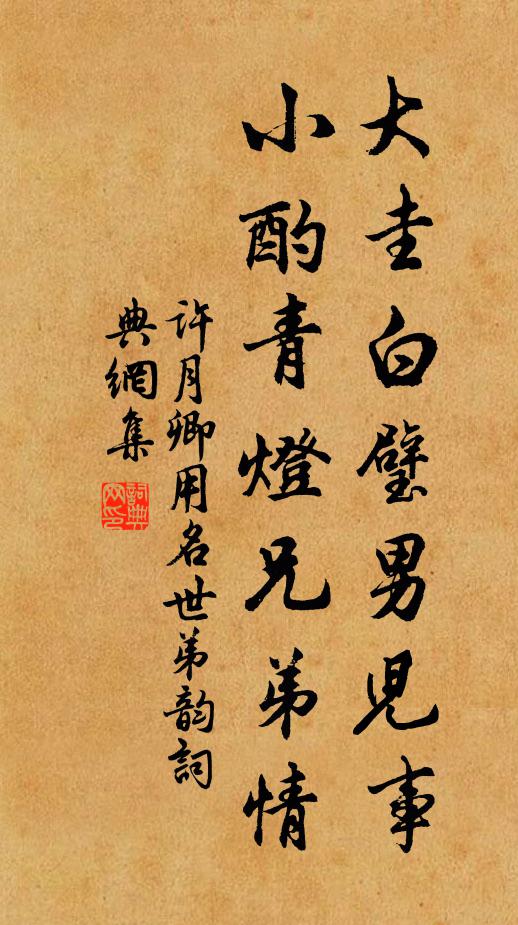 大圭白璧男児事
小酌青燈兄弟情
許月卿用名世弟韵詞
典網集
詞典網印